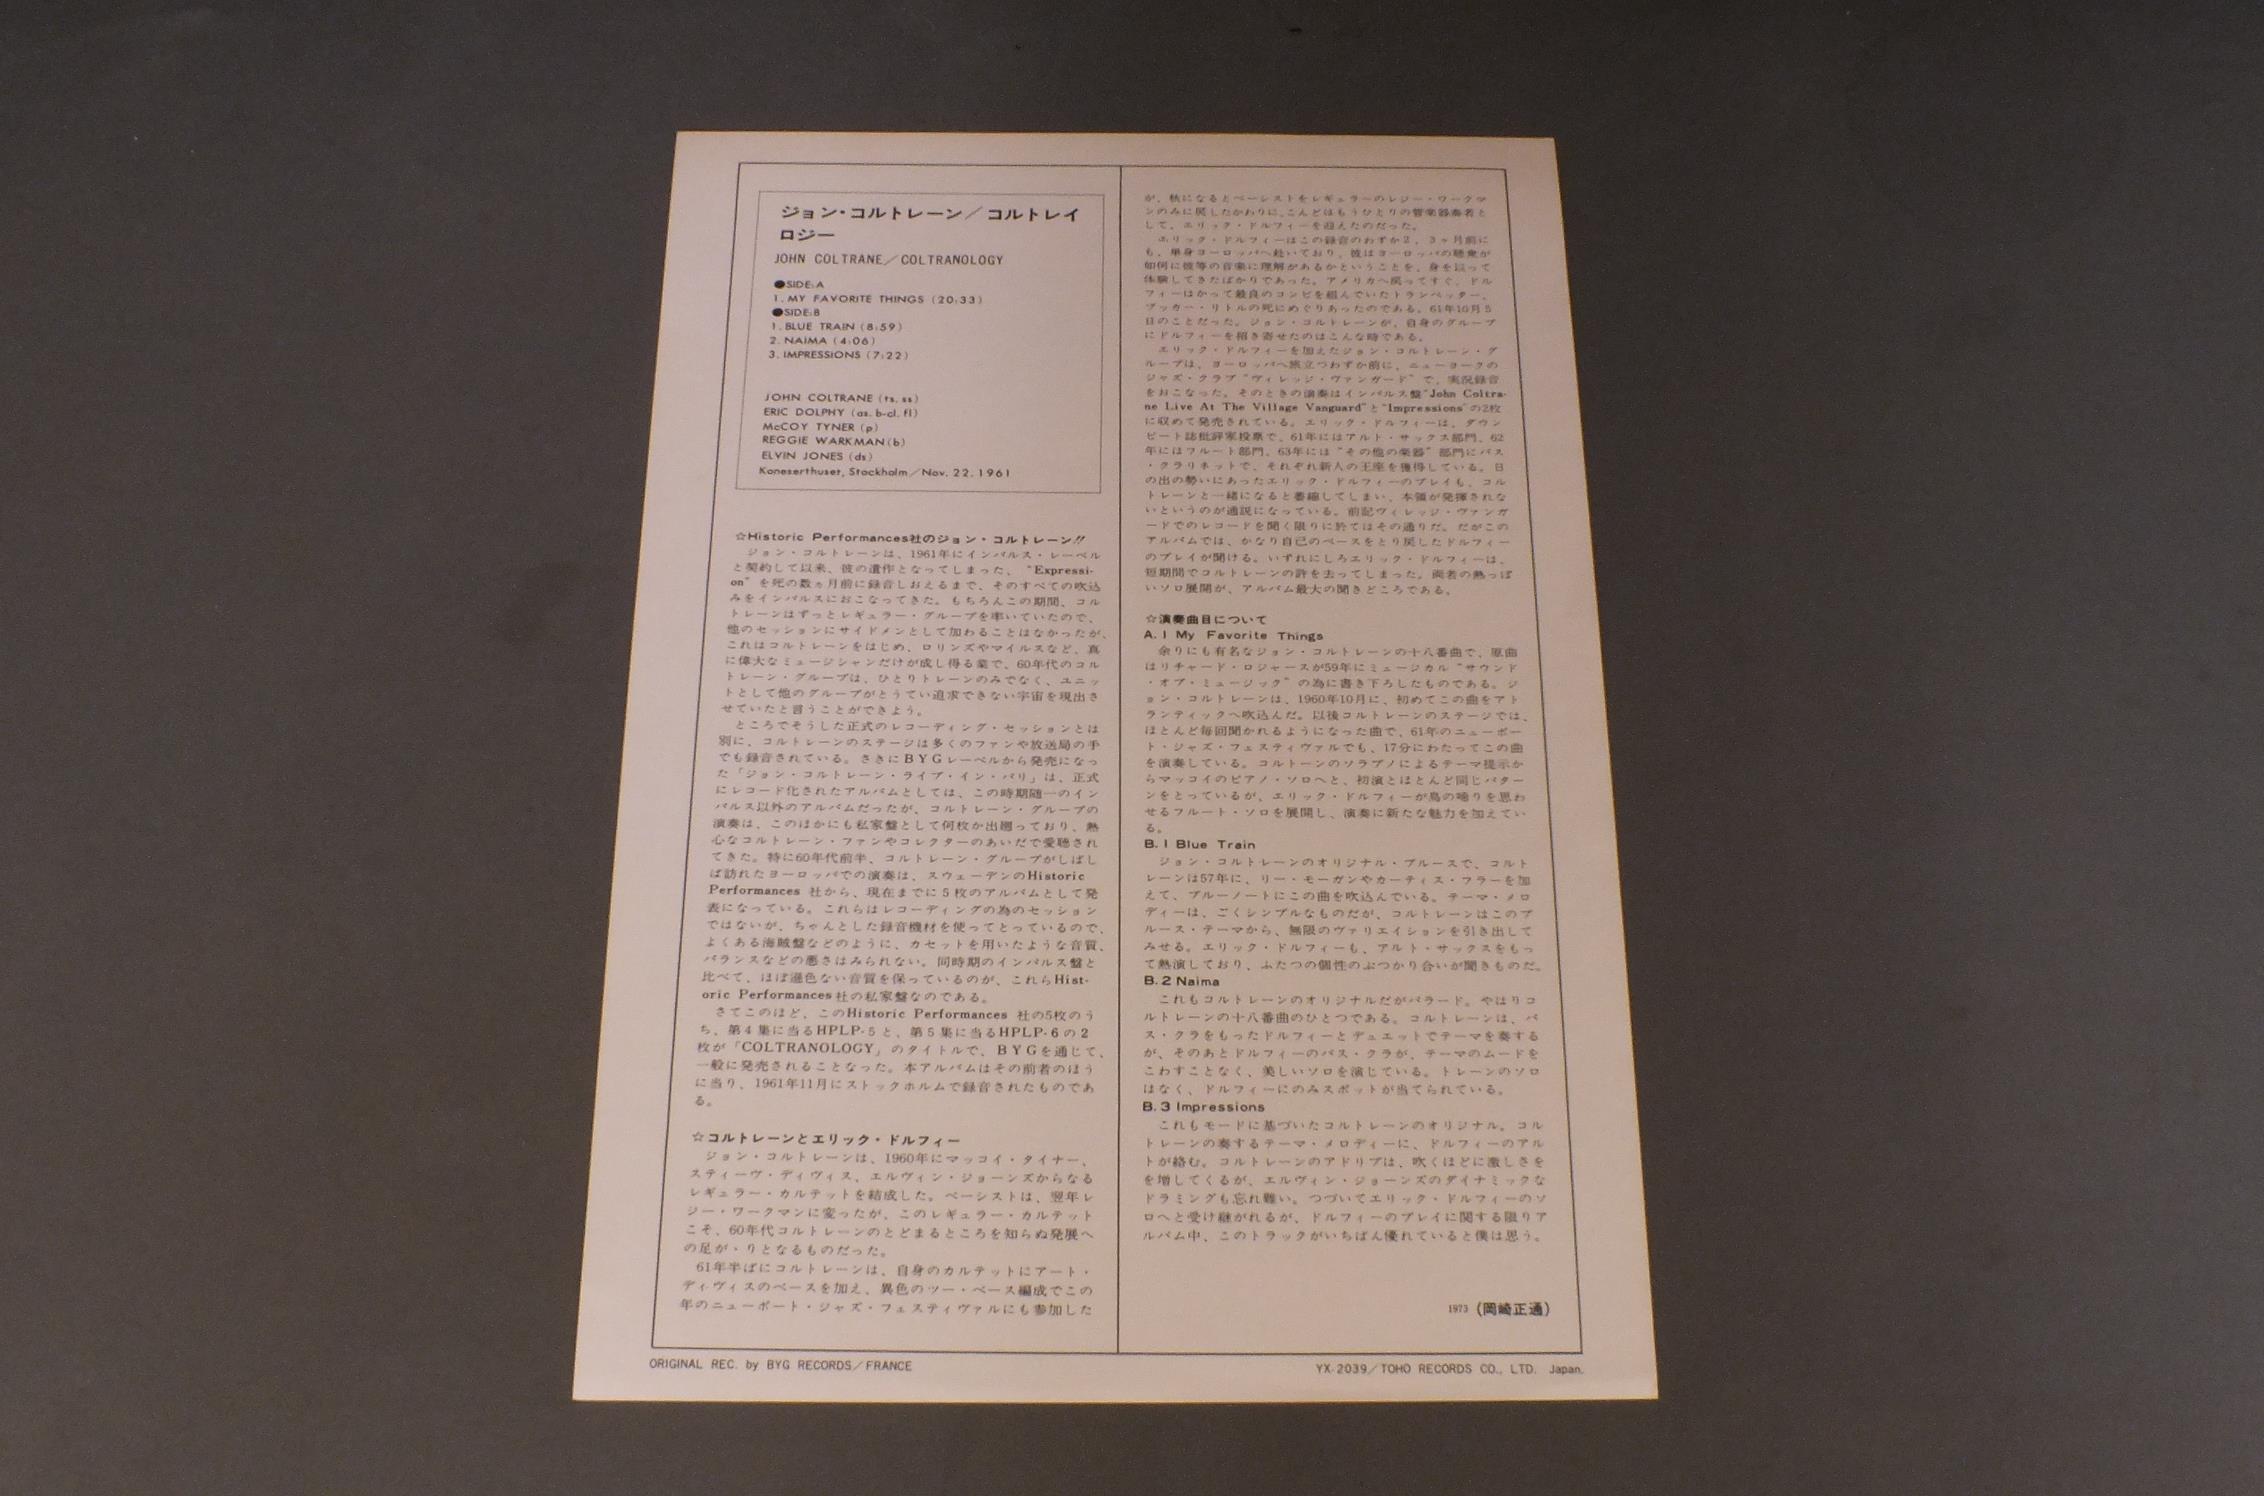 ジョン・コルトレーン／コルトレイ
ロジー
JOHN COLTRANE／COLTRANOLOGY
●SIDE:A
1. MY FAVORITE THINGS (20:33)
●SIDE:B
1. BLUE TRAIN (8:59)
2. NAIMA (4:06)
3. IMPRESSIONS (7:22)
JOHN COLTRANE (ts. ss)
ERIC DOLPHY (as. b-cl. fl)
McCOY TYNER (p)
REGGIE WARKMAN (b)
ELVIN JONES (ds)
Koneserthuset, Stockholm／Nov. 22. 1961
☆Historic Performances社のジョン・コルトレーン!!
ジョン・コルトレーンは、1961年にインパルス・レーベル
と契約して以来、彼の遺作となってしまった、“Expressi-
on”を死の数ヵ月前に録音しおえるまで、そのすべての吹込
みをインパルスにおこなってきた。もちろんこの期間、コル
トレーンはずっとレギュラー・グループを率いていたので、
他のセッションにサイドメンとして加わることはなかったが、
これはコルトレーンをはじめ、ロリンズやマイルスなど、真
に偉大なミュージシャンだけが成し得る業で、60年代のコル
トレーン・グループは、ひとりトレーンのみでなく、ユニッ
トとして他のグループがとうてい追求できない宇宙を現出さ
せていたと言うことができよう。
ところでそうした正式のレコーディング・セッションとは
別に、コルトレーンのステージは多くのファンや放送局の手
でも録音されている。さきにＢＹＧレーベルから発売になっ
た「ジョン・コルトレーン・ライブ・イン・パリ」は、正式
にレコード化されたアルバムとしては、この時期随一のイン
パルス以外のアルバムだったが、コルトレーン・グループの
演奏は、このほかにも私家盤として何枚か出廻っており、熱
心なコルトレーン・ファンやコレクターのあいだで愛聴され
てきた。特に60年代前半、コルトレーン・グループがしばし
ば訪れたヨーロッパでの演奏は、スウェーデンのHistoric
Performances 社から、現在までに５枚のアルバムとして発
表になっている。これらはレコーディングの為のセッション
ではないが、ちゃんとした録音機材を使ってとっているので、
よくある海賊盤などのように、カセットを用いたような音質、
バランスなどの悪さはみられない。同時期のインパルス盤と
比べて、ほぼ遜色ない音質を保っているのが、これらHist-
oric Performances社の私家盤なのである。
さてこのほど、このHistoric Performances 社の5枚のう
ち、第４集に当るHPLP-５と、第５集に当るHPLP-６の２
枚が「COLTRANOLOGY」のタイトルで、ＢＹＧを通じて、
一般に発売されることなった。本アルバムはその前者のほう
に当り、1961年11月にストックホルムで録音されたものであ
る。
☆コルトレーンとエリック・ドルフィー
ジョン・コルトレーンは、1960年にマッコイ・タイナー、
スティーヴ・ディヴィス、エルヴィン・ジョーンズからなる
レギュラー・カルテットを結成した。ベーシストは、翌年レ
ジー・ワークマンに変ったが、このレギュラー・カルテット
こそ、60年代コルトレーンのとどまるところを知らぬ発展へ
の足が・りとなるものだった。
61年半ばにコルトレーンは、自身のカルテットにアート・
ディヴィスのベースを加え、異色のツー・ベース編成でこの
年のニューポート・ジャズ・フェスティヴァルにも参加した
が、秋になるとベーシストをレギュラーのレジー・ワークマ
ンのみに戻したかわりに、こんどはもうひとりの管楽器奏者と
して、エリック・ドルフィーを迎えたのだった。
エリック・ドルフィーはこの録音のわずか２，３ヶ月前に
も、単身ヨーロッパへ赴いており、彼はヨーロッパの聴衆が
如何に彼等の音楽に理解があるかということを、身を以って
体験してきたばかりであった。アメリカへ戻ってすぐ、ドル
フィーはかって最良のコンビを組んでいたトランペッター、
ブッカー・リトルの死にめぐりあったのである。61年10月５
日のことだった。ジョン・コルトレーンが、自身のグループ
にドルフィーを招き寄せたのはこんな時である。
エリック・ドルフィーを加えたジョン・コルトレーン・グ
ループは、ヨーロッパへ旅立つわずか前に、ニューヨークの
ジャズ・クラブ“ヴィレッジ・ヴァンガード”で、実況録音
をおこなった。そのときの演奏はインパルス盤“John Coltra-
ne Live At The Village Vanguard”と“Impressions”の2枚
に収めて発売されている。エリック・ドルフィーは、ダウン
ビート誌批評家投票で、61年にはアルト・サックス部門、62
年にはフルート部門、63年には“その他の楽器”部門にバス
・クラリネットで、それぞれ新人の王座を獲得している。日
の出の勢いにあったエリック・ドルフィーのプレイも、コル
トレーンと一緒になると萎縮してしまい、本領が発揮されな
いというのが通説になっている。前記ヴィレッジ・ヴァンガ
ードでのレコードを聞く限りに於てはその通りだ。だがこの
アルバムでは、かなり自己のペースをとり戻したドルフィー
のプレイが聞ける。いずれにしろエリック・ドルフィーは、
短期間でコルトレーンの許を去ってしまった。両者の熱っぽ
いソロ展開が、アルバム最大の聞きどころである。
☆演奏曲目について
A. 1 My Favorite Things
余りにも有名なジョン・コルトレーンの十八番曲で、原曲
はリチャード・ロジャースが59年にミュージカル“サウンド
・オブ・ミュージック”の為に書き下ろしたものである。ジ
ョン・コルトレーンは、1960年10月に、初めてこの曲をアト
ランティックへ吹込んだ。以後コルトレーンのステージでは、
ほとんど毎回聞かれるようになった曲で、61年のニューポー
ト・ジャズ・フェスティヴァルでも、17分にわたってこの曲
を演奏している。コルトーンのソラプノによるテーマ提示か
らマッコイのピアノ・ソロへと、初演とほとんど同じパター
ンをとっているが、エリック・ドルフィーが鳥の囀りを思わ
せるフルート・ソロを展開し、演奏に新たな魅力を加えてい
る。
B. 1 Blue Train
ジョン・コルトレーンのオリジナル・ブルースで、コルト
レーンは57年に、リー・モーガンやカーティス・フラーを加
えて、ブルーノートにこの曲を吹込んでいる。テーマ・メロ
ディーは、ごくシンプルなものだが、コルトレーンはこのブ
ルース・テーマから、無限のヴァリエイションを引き出して
みせる。エリック・ドルフィーも、アルト・サックスをもっ
て熱演しており、ふたつの個性のぶつかり合いが聞きものだ。
B. 2 Naima
これもコルトレーンのオリジナルだがバラード。やはりコ
ルトレーンの十八番曲のひとつである。コルトレーンは、バ
ス・クラをもったドルフィーとデュエットでテーマを奏する
が、そのあとドルフィーのバス・クラが、テーマのムードを
こわすことなく、美しいソロを演じている。トレーンのソロ
はなく、ドルフィーにのみスポットが当てられている。
B. 3 Impressions
これもモードに基づいたコルトレーンのオリジナル。コル
トレーンの奏するテーマ・メロディーに、ドルフィーのアル
トが絡む。コルトレーンのアドリブは、吹くほどに激しさを
を増してくるが、エルヴィン・ジョーンズのダイナミックな
ドラミングも忘れ難い。つづいてエリック・ドルフィーのソ
ロへと受け継がれるが、ドルフィーのプレイに関する限りア
ルバム中、このトラックがいちばん優れていると僕は思う。
1973 (岡崎正通)
ORIGINAL REC. by BYG RECORDS／FRANCE
YX-2039／TOHO RECORDS CO., LTD. Japan.